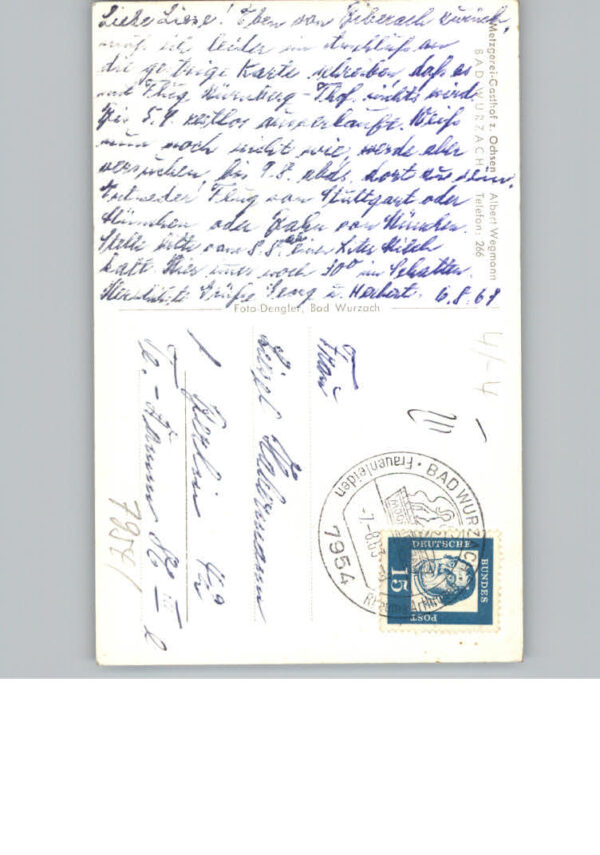 Liebe Liese! Eben von Biberach zurück,
muß ich leider im Anschluß an
die gestrige Karte schreiben, daß es
mit Flug Nürnberg - Thof. nichts wird.
Bis 5.9. restlos ausverkauft. Weiß
nun noch nicht wie, werde aber
versuchen, bis 9.8. abds. dort zu sein.
Entweder Flug von Stuttgart oder
München oder Bahn von München.
Stelle bitte vom 8.8. ein Liter Milch
kalt. Hier immer noch 30° im Schatten.
Herzlichste Grüße Georg u. Herbert. 6.8.63
Metzgerei-Gasthof z. Ochsen Albert Wegmann
BAD WURZACH Telefon: 266
Foto-Dengler, Bad Wurzach
Frau
1 Berlin 42
7954/
4/-4
BAD WURZACH
Frauenleiden
7954
DEUTSCHE
BUNDES
POST
15